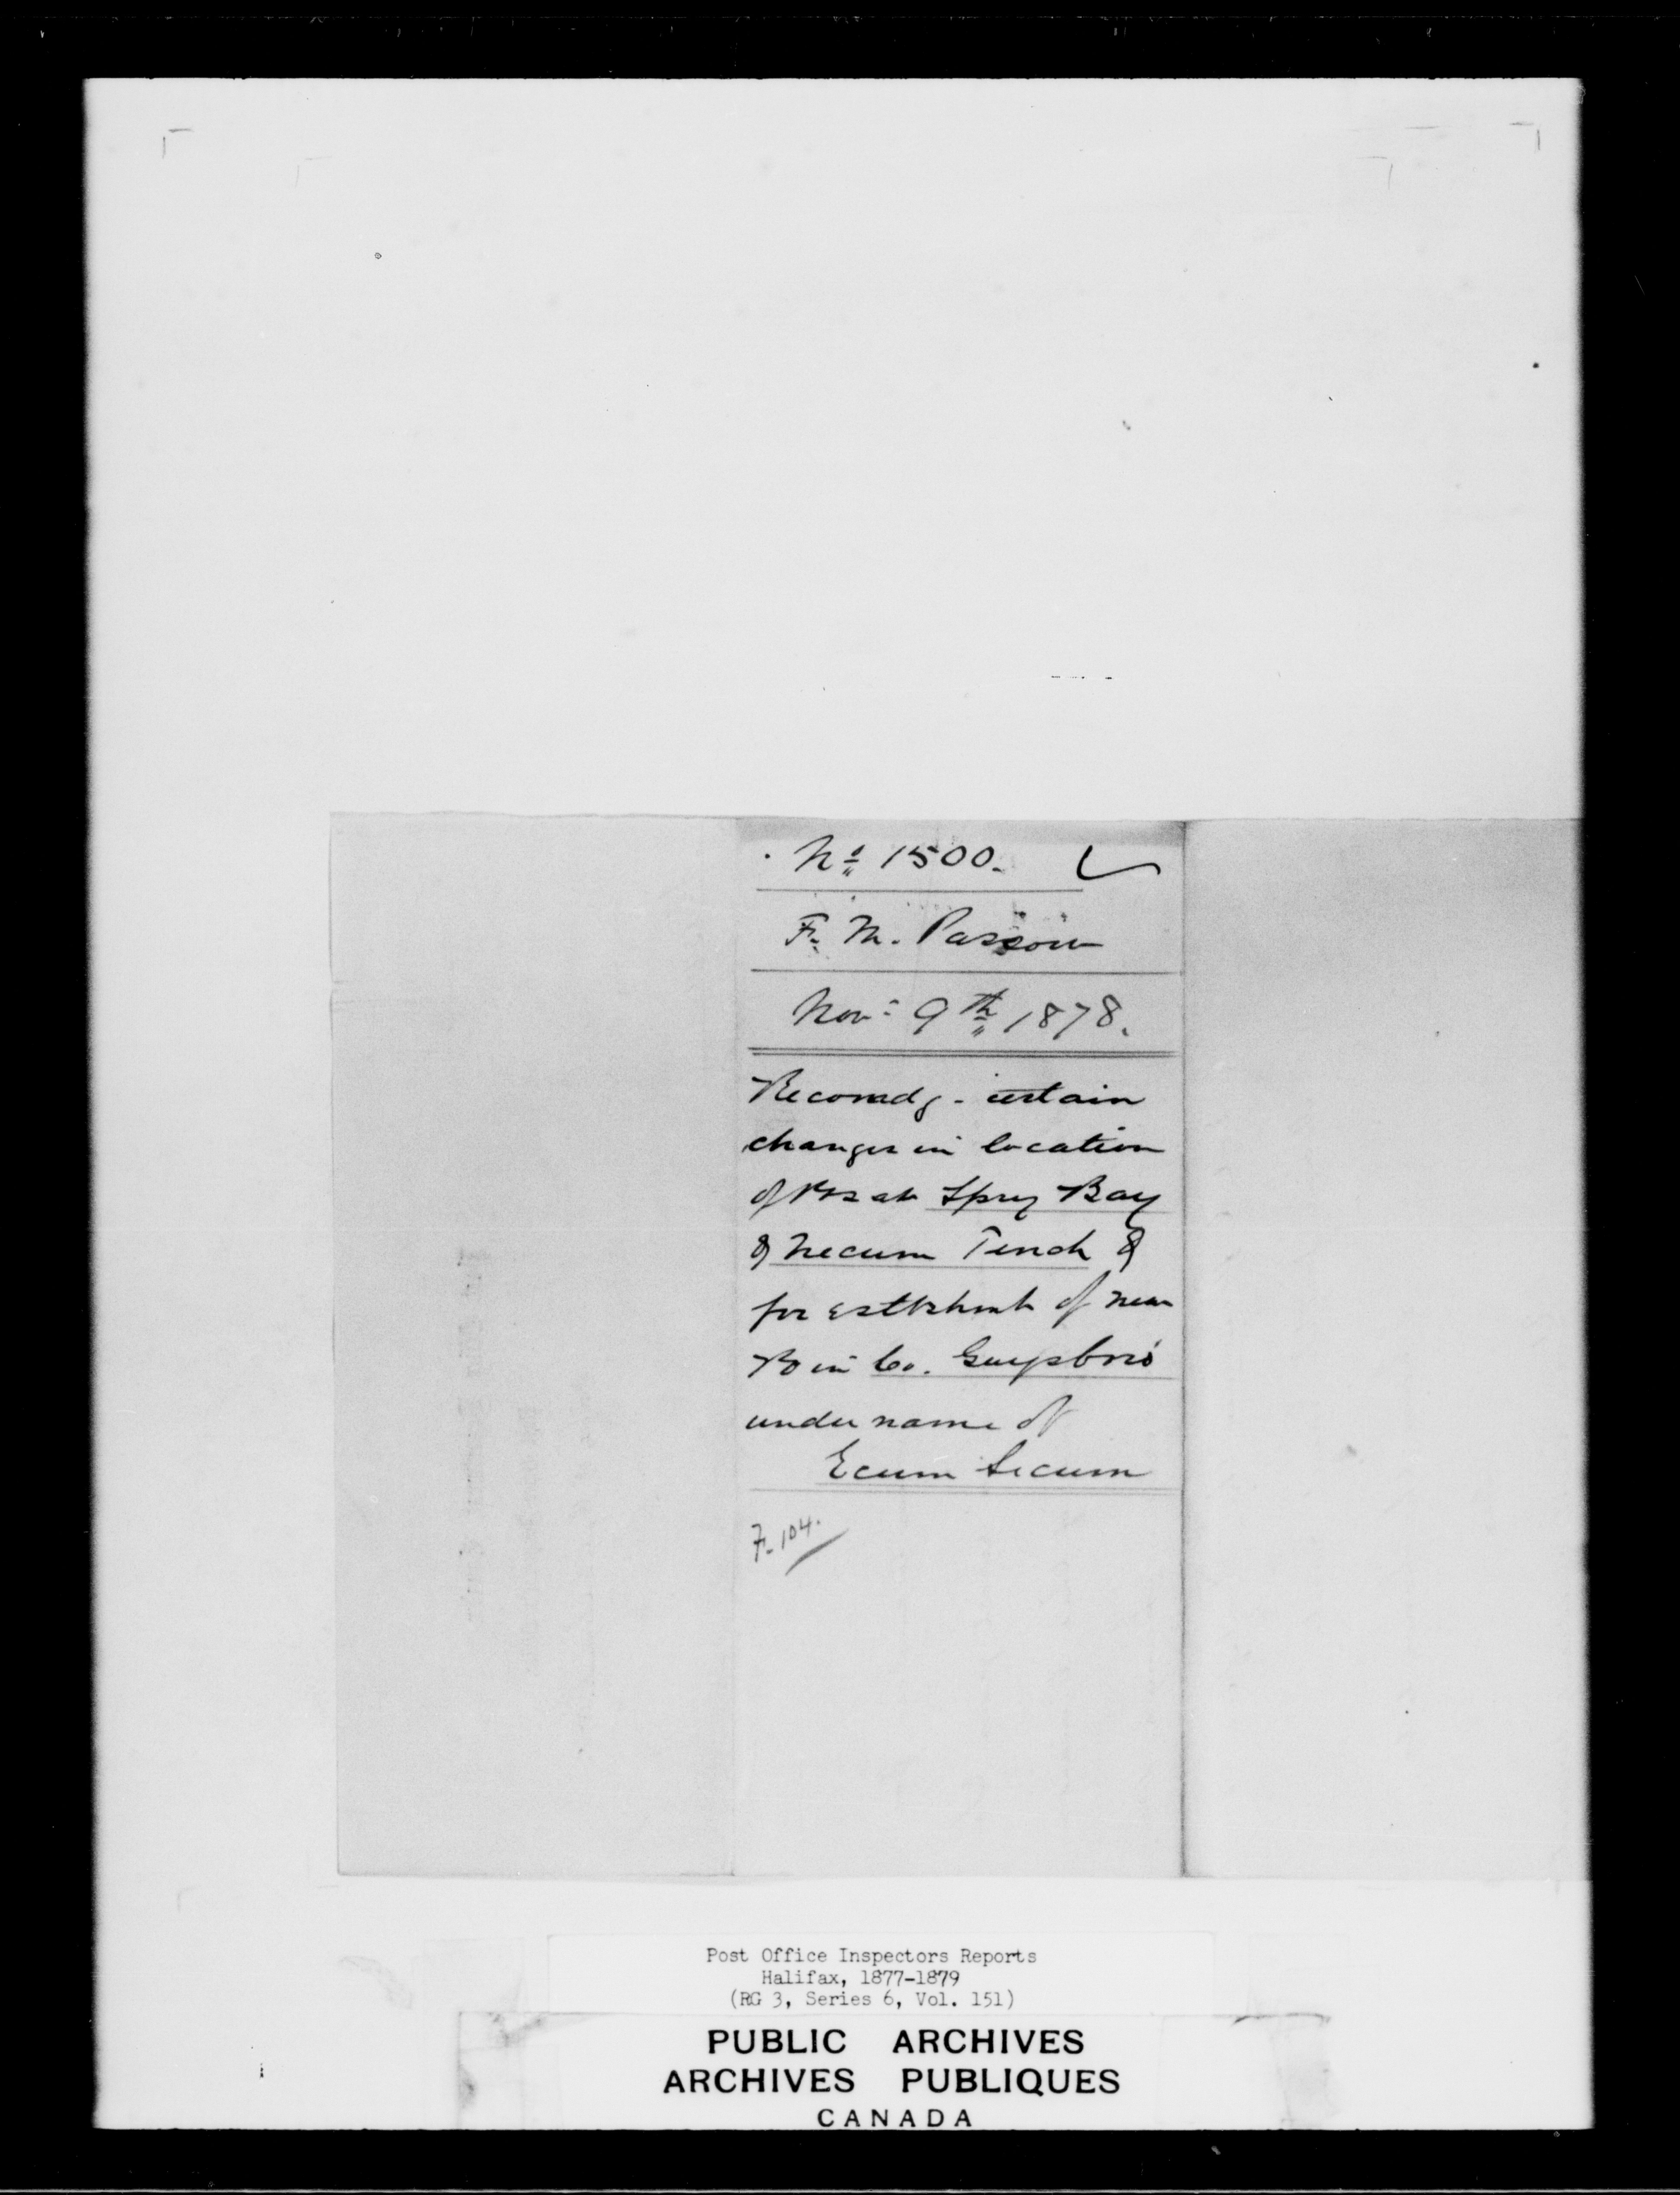 No 1500.
F. M. Passow
Nov: 9th 1878.
Recomdg - certain
changes in location
of POs at Spry Bay
& Necum Teuch &
for establshmt of new
PO in Co. Guysboro'
under name of
Ecum Secum
F. 104.
Post Office Inspectors Reports
Halifax, 1877-1879
(RG 3, Series 6, Vol. 151)
PUBLIC ARCHIVES
ARCHIVES PUBLIQUES
CANADA